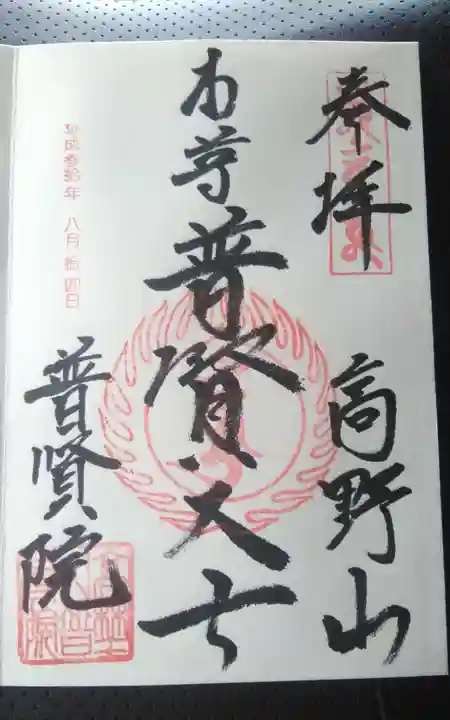 奉拝 高野山
本尊 普賢大士
普賢院
平成参拾年 八月拾四日